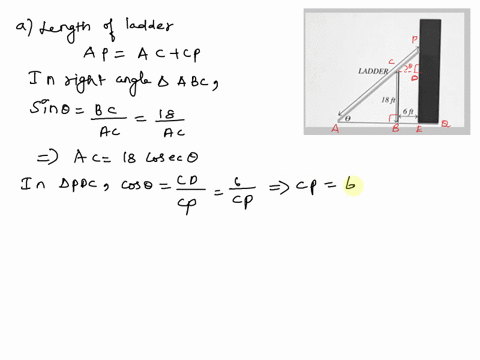 a) Length of ladder
AP = AC + CP
In right angle Δ ABC,
Sinθ = BC/AC = 18/AC
=> AC = 18 cosecθ
In ΔPDC, cosθ = CD/CP = 6/CP => CP = 6
P
C
θ
D
LADDER
18 ft
6 ft
A
θ
B
E
Q